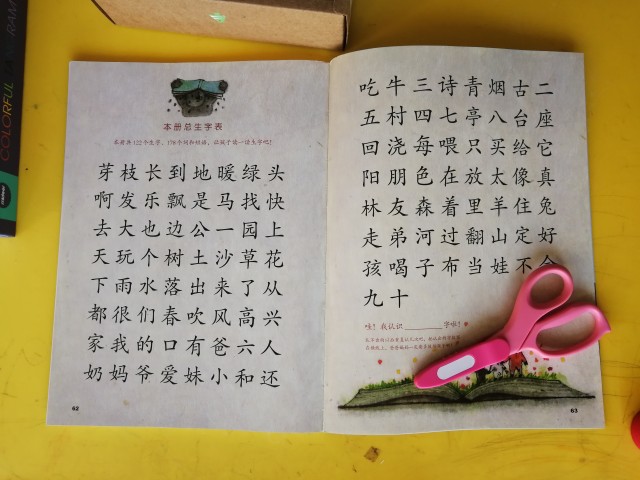 本册总生字表
芽枝长到地暖绿头
啊发乐飘是马找快
去大也边公一园上
天玩个树土沙草花
下雨水落出来了从
都很们春吹风高兴
家我的口有爸六人
奶妈爷爱妹小和还
62
吃牛三诗青烟古二
五村四七亭八台座
回浇每喂只买给它
阳朋色在放太像真
林友森着里羊住兔
走弟河过翻山定好
孩喝子布当娃不
九十
哇！我认识________字啦！
63
COLORFUL